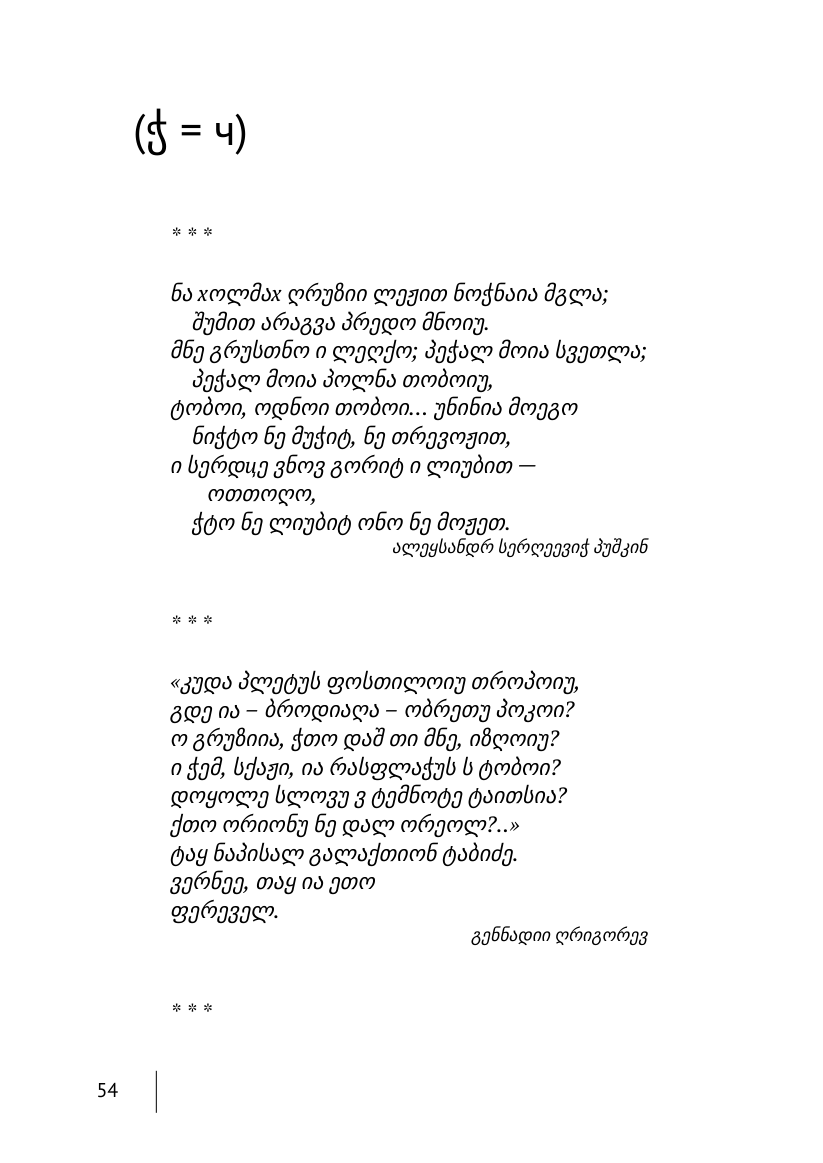 (ჭ = ч)
* * *
ნა xოლმაx ღრუზიი ლეჟით ნოჭნაია მგლა;
შუმით არაგვა პრედო მნოიუ.
მნე გრუსთნო ი ლეღქო; პეჭალ მოია სვეთლა;
პეჭალ მოია პოლნა თობოიუ,
ტობოი, ოდნოი თობოი... უნინია მოეგო
ნიჭტო ნე მუჭიტ, ნე თრევოჟით,
ი სერდцე ვნოვ გორიტ ი ლიუბით —
ოთთოღო,
ჭტო ნე ლიუბიტ ონო ნე მოჟეთ.
ალეყსანდრ სერღეევიჭ პუშკინ
* * *
«კუდა პლეტუს ფოსთილოიუ თროპოიუ,
გდე ია – ბროდიაღა – ობრეთუ პოკოი?
ო გრუზიია, ჭთო დაშ თი მნე, იზღოიუ?
ი ჭემ, სქაჟი, ია რასფლაჭუს ს ტობოი?
დოყოლე სლოვუ ვ ტემნოტე ტაითსია?
ქთო ორიონუ ნე დალ ორეოლ?..»
ტაყ ნაპისალ გალაქთიონ ტაბიძე.
ვერნეე, თაყ ია ეთო
ფერეველ.
გენნადიი ღრიგორევ
* * *
54